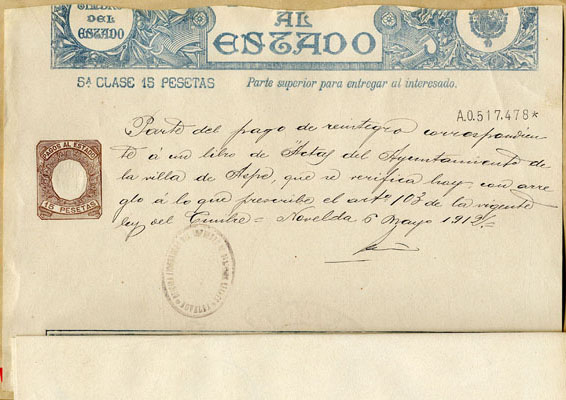 TIMBRE
DEL
ESTADO
AL
ESTADO
5ª CLASE 15 PESETAS
Parte superior para entregar al interesado.
A.0.517.478*
Parte del pago de reintegro correspondien-
te á un libro de Actas del Ayuntamiento de
la villa de Aspe, que se verifica hoy, con arre-
glo á lo que prescribe el artº 103 de la vigente
ley del Timbre = Novelda 6 Mayo 1912.=
PAGOS AL ESTADO
15 PESETAS